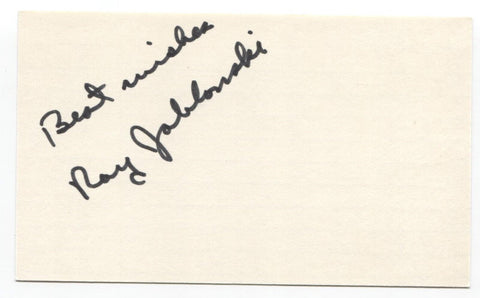 Best wishes
Ray Jablonski